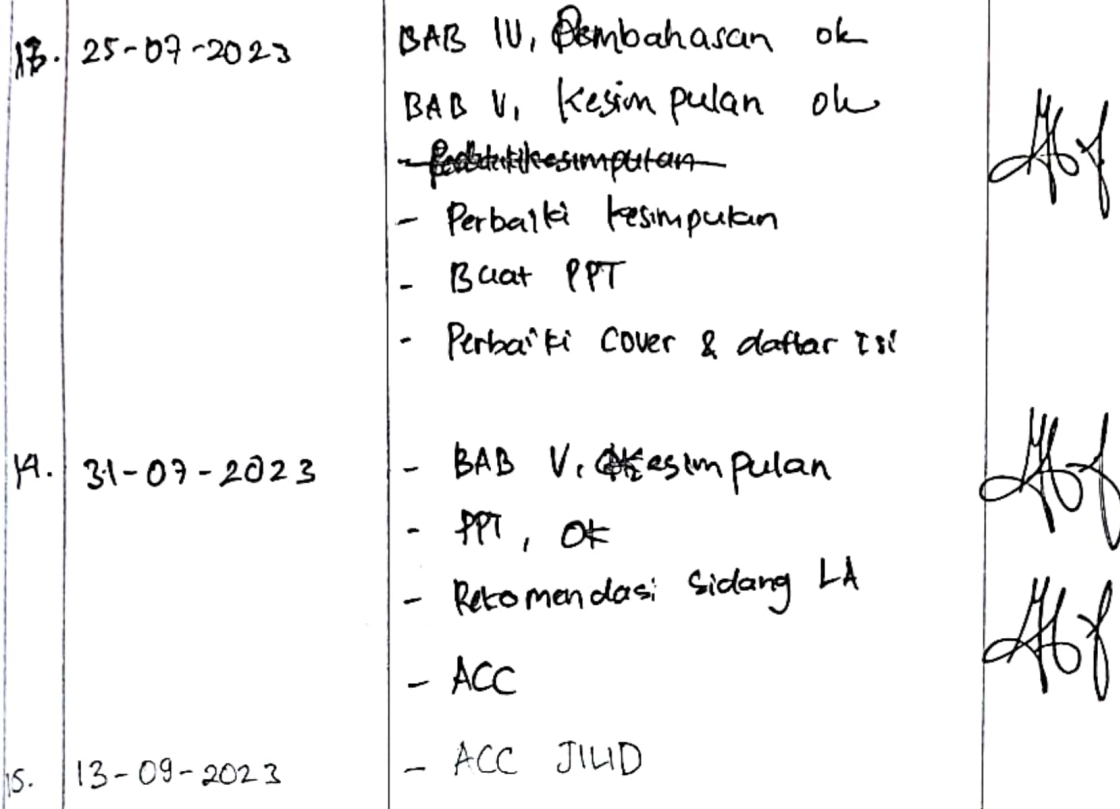 13. 25-07-2023 BAB IV, Pembahasan ok
BAB V, Kesimpulan ok
- Perbaiki kesimpulan
- Buat PPT
- Perbaiki Cover & daftar isi
14. 31-07-2023 - BAB V. Kesimpulan
- PPT, Ok
- Rekomendasi Sidang LA
- ACC
15. 13-09-2023 - ACC JILID